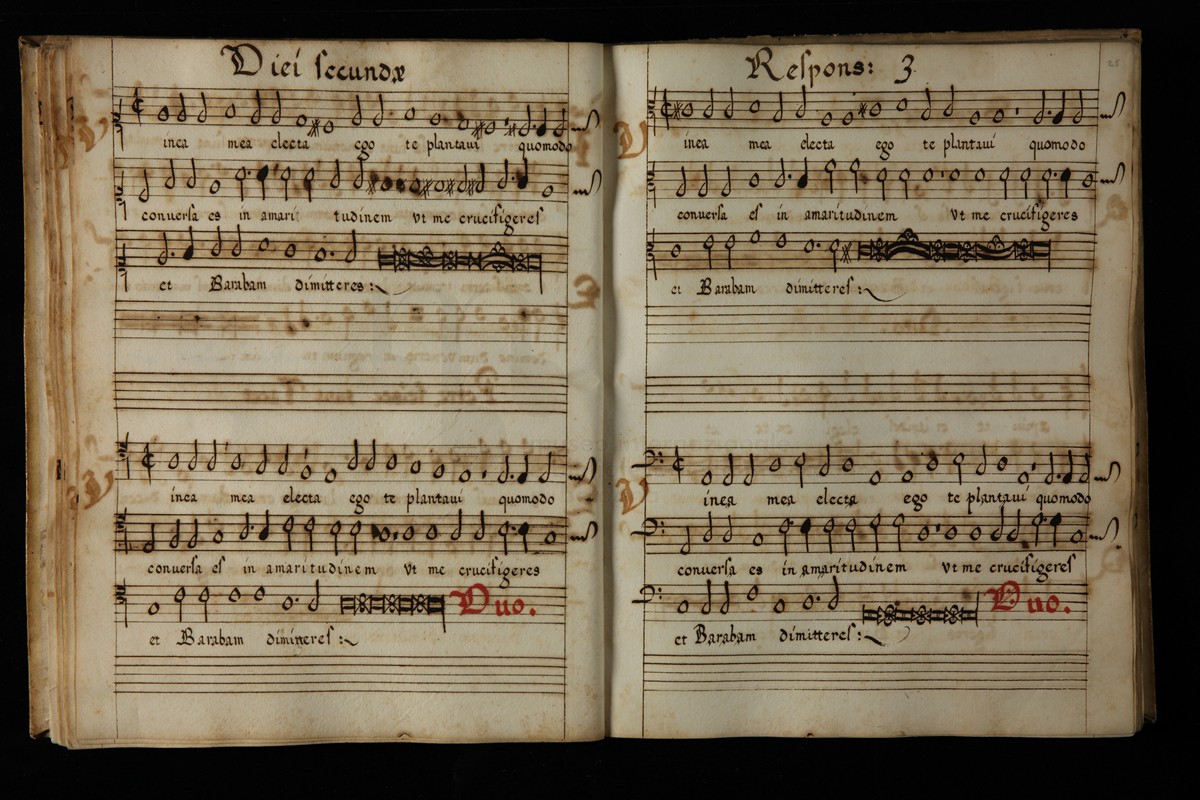 Diei secundæ
Vinea mea electa ego te plantaui quomodo
conuersa es in amaritudinem vt me crucifigeres
et Barabam dimitteres:
Vinea mea electa ego te plantaui quomodo
conuersa es in amaritudinem vt me crucifigeres
et Barabam dimitteres: Duo.
Respons: 3
25
Vinea mea electa ego te plantaui quomodo
conuersa es in amaritudinem vt me crucifigeres
et Barabam dimitteres:
Vinea mea electa ego te plantaui quomodo
conuersa es in amaritudinem vt me crucifigeres
et Barabam dimitteres: Duo.